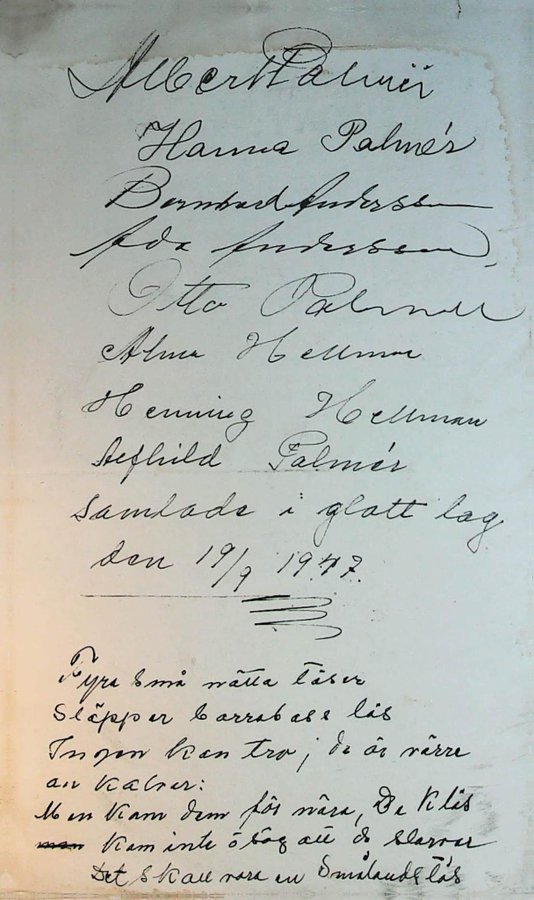 Albert Palmér
Hanna Palmér
Bernhard Andersson
Ada Andersson
Otto Palmér
Alma Hellman
Henning Hellman
Palmér
Samlade i glatt lag
den 19/9 1947.
Fyra små nätta töser
Släpper Barrabass lös
Ingen kan tro, de är värre
än kalvar:
Men kom dem för nära, De Klös
kom inte ihåg att de
Det skall vara en Smålandstös